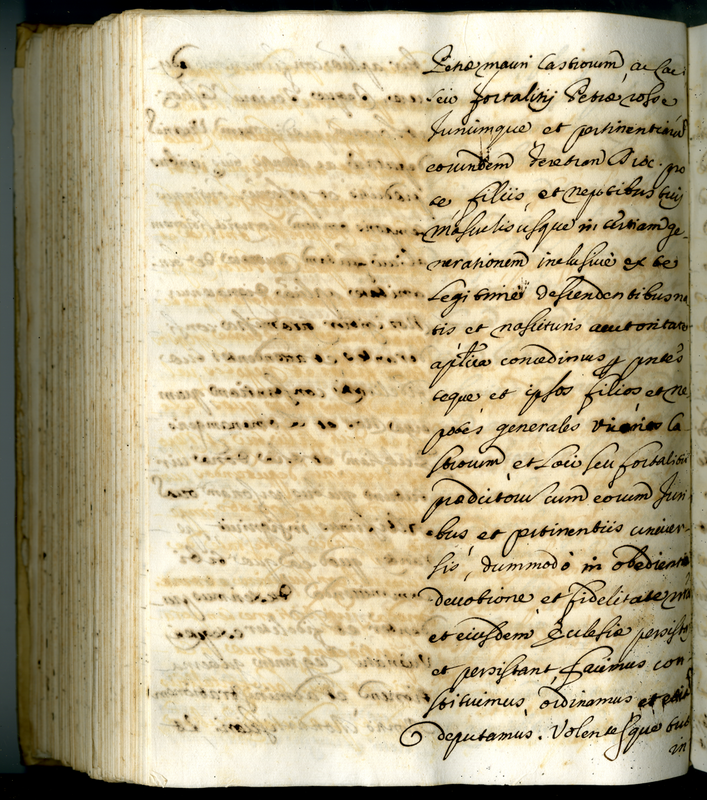 Petræ mauri Castrorum, ac Lo-
ci seu fortalitij Petræ rosse
Iuriumque et pertinentiarũ
eorundem Feretran Dioc. pro
te filiis, et nepotibus tuis
masculis usque in tertiam ge-
nerationem inclusive ex te
Legitime descendentibus na
tis et nascituris autoritate
aplica concedimus p pntes
teque et ipsos filios et ne
potes generales Vicarios Ca
strorum et Loci seu fortalitii
prædictorũ cum eorum Juri
bus et pertinentiis univer-
sis, dummodo in obedientia
devotione et fidelitate nrã
et eiusdem Ecclesiæ persistas
et persistant, facimus con
stituimus, ordinamus et etiã
deputamus. Volentesque tu
in